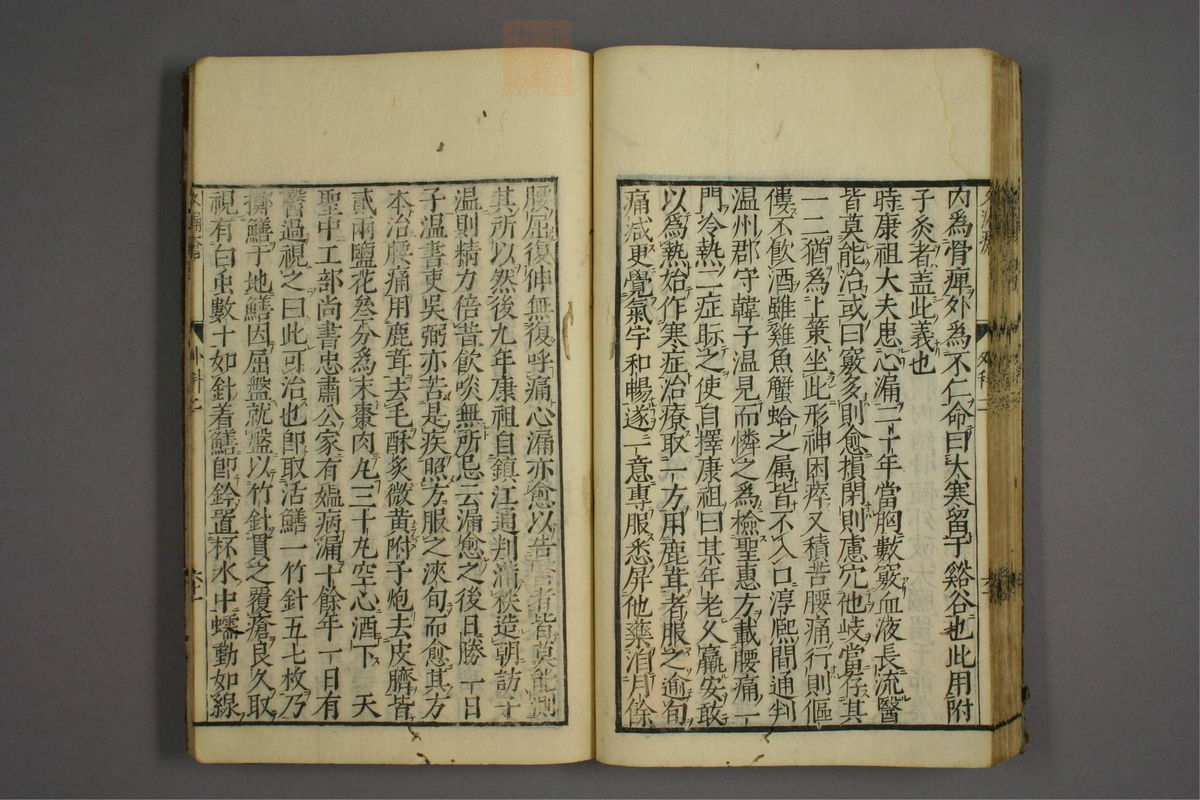 内爲骨痺外爲不仁命曰大寒留于谿谷也此用附
子炙者盖此義也
時康祖大夫患心漏二十年當胸數竅血液長流醫
皆莫能治或曰竅多則愈損閉則慮穴他岐當存其
一二猶爲上策坐此形神困瘁又積苦腰痛行則傴
僂不飲酒雖雞魚蟹蛤之属皆不入口淳熈間通判
温州郡守韓子温見而憐之爲檢聖惠方載腰痛一
門冷熱二症眎之使自擇康祖曰某年老久羸安敢
以爲熱始作寒症治療取一方用鹿茸者服之逾旬
痛減更覺氣宇和暢遂一意專服悉屏他藥洎月餘
腰屈復伸無復呼痛心漏亦愈以告醫者皆莫能測
其所以然後九年康祖自鎮江通判滿秩造朝訪子
温則精力倍昔飲啖無所忌云漏愈之後日勝一日
子温書吏吳弼亦苦是疾照方服之浹旬而愈其方
本治腰痛用鹿茸去毛酥炙微黄附子炮去皮臍皆
貳兩鹽花叄分爲末棗肉丸三十丸空心酒下　天
聖中工部尚書忠肅公家有媪病漏十餘年一日有
醫過視之曰此可治也即取活鱔一竹針五七枚乃
擲鱔于地鱔因屈盤就盤以竹針貫之覆瘡良久取
視有白虫數十如針着鱔即鈐置杯水中蠕動如線
外科二